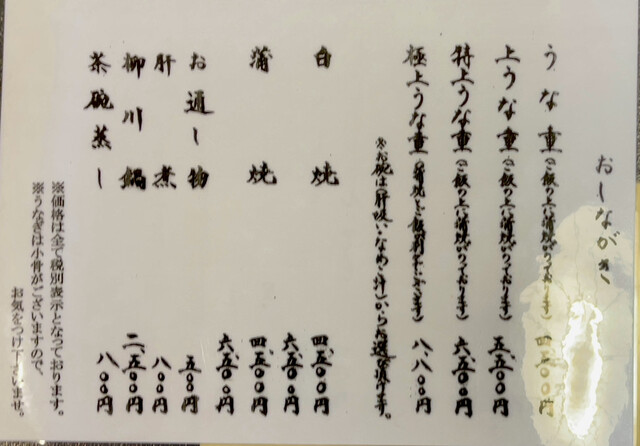 おしながき
うな重(ご飯の上に蒲焼がのっております) 四、五〇〇円
上うな重(ご飯の上に蒲焼がのっております) 五、五〇〇円
特上うな重(ご飯の上に蒲焼がのっております) 六、五〇〇円
極上うな重(蒲焼とご飯が別々にございます) 八、八〇〇円
※お碗は(肝吸い・なめこ汁)からお選び頂けます。
白焼 四、五〇〇円
六、五〇〇円
蒲焼 四、五〇〇円
六、五〇〇円
お通し物 五〇〇円
肝煮 八〇〇円
柳川鍋 二、五〇〇円
茶碗蒸し 八〇〇円
※価格は全て税別表示となっております。
※うなぎは小骨がございますので、
お気をつけ下さいませ。